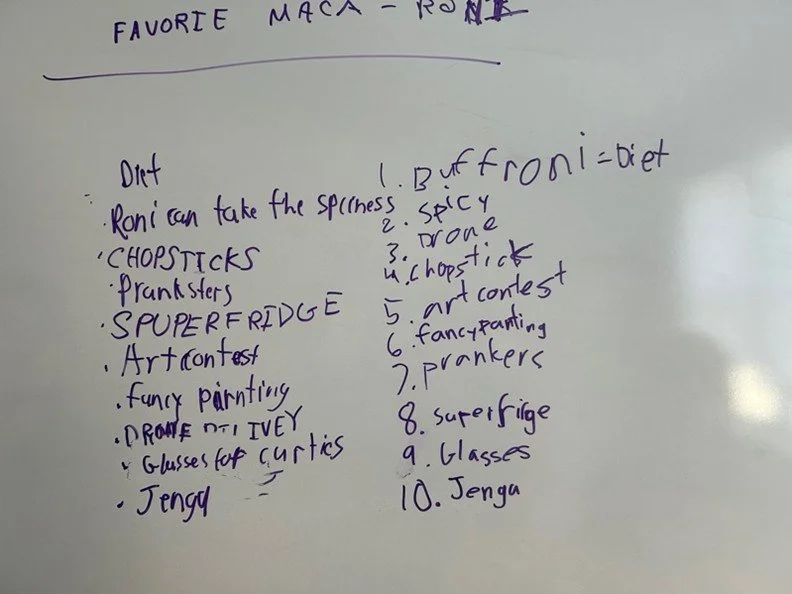 FAVORIE MACA - RONI
Diet
· Roni can take the spicness
· CHOPSTICKS
· Pranksters
· SPUPERFRIDGE
· Art contest
· fancy pirnting
· DRONE DELIVEY
· Glasses for curtics
· Jenga
1. Buffroni = Diet
2. SPICY
3. Drone
4. chopstick
5. art contest
6. fancy panting
7. prankers
8. superfrige
9. Glasses
10. Jenga